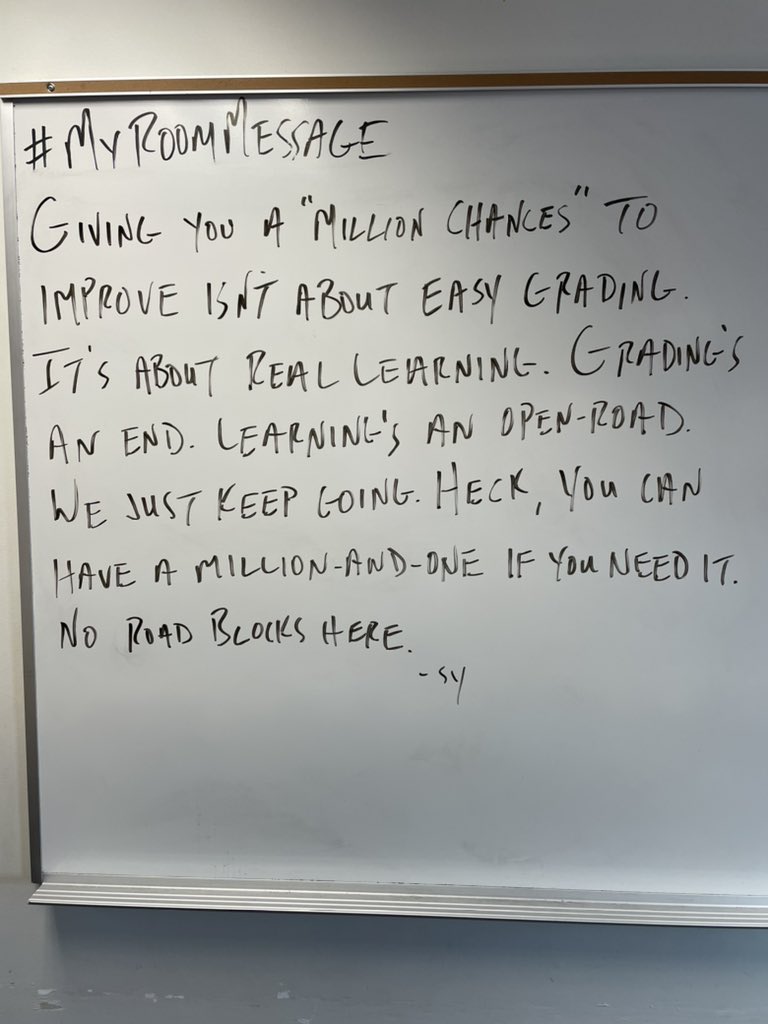 #MYROOMMESSAGE
GIVING YOU A "MILLION CHANCES" TO
IMPROVE ISN'T ABOUT EASY GRADING.
IT'S ABOUT REAL LEARNING. GRADING'S
AN END. LEARNING'S AN OPEN-ROAD.
WE JUST KEEP GOING. HECK, YOU CAN
HAVE A MILLION-AND-ONE IF YOU NEED IT.
NO ROAD BLOCKS HERE.
-SY